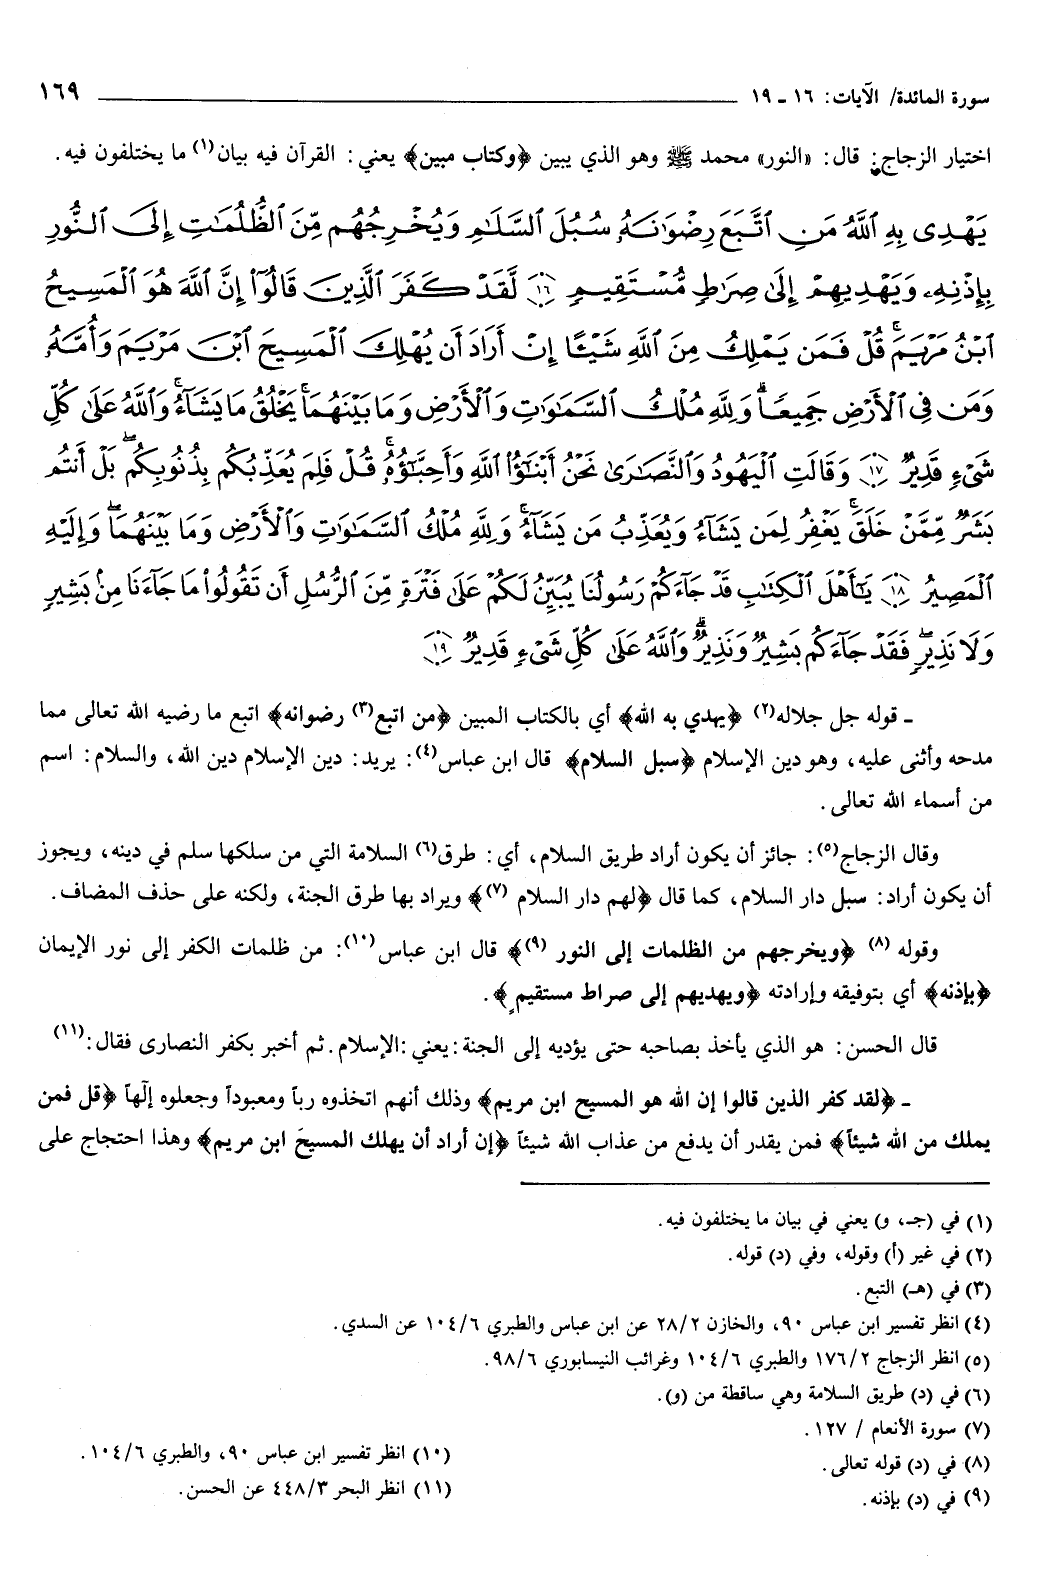 سورة المائدة/ الآيات: ١٦ ـ ١٩ ١٦٩
اختيار الزجاج: قال: «النور» محمد ﷺ وهو الذي يبين ﴿وكتاب مبين﴾ يعني: القرآن فيه بيان(١) ما يختلفون فيه.
يَهْدِى بِهِ ٱللَّهُ مَنِ ٱتَّبَعَ رِضْوَٰنَهُۥ سُبُلَ ٱلسَّلَٰمِ وَيُخْرِجُهُم مِّنَ ٱلظُّلُمَٰتِ إِلَى ٱلنُّورِ
بِإِذْنِهِۦ وَيَهْدِيهِمْ إِلَىٰ صِرَٰطٍ مُّسْتَقِيمٍ ١٦ لَّقَدْ كَفَرَ ٱلَّذِينَ قَالُوٓا۟ إِنَّ ٱللَّهَ هُوَ ٱلْمَسِيحُ
ٱبْنُ مَرْيَمَ ۚ قُلْ فَمَن يَمْلِكُ مِنَ ٱللَّهِ شَيْـًٔا إِنْ أَرَادَ أَن يُهْلِكَ ٱلْمَسِيحَ ٱبْنَ مَرْيَمَ وَأُمَّهُۥ
وَمَن فِى ٱلْأَرْضِ جَمِيعًا ۗ وَلِلَّهِ مُلْكُ ٱلسَّمَٰوَٰتِ وَٱلْأَرْضِ وَمَا بَيْنَهُمَا ۚ يَخْلُقُ مَا يَشَآءُ ۚ وَٱللَّهُ عَلَىٰ كُلِّ
شَىْءٍ قَدِيرٌ ١٧ وَقَالَتِ ٱلْيَهُودُ وَٱلنَّصَٰرَىٰ نَحْنُ أَبْنَٰٓؤُا۟ ٱللَّهِ وَأَحِبَّٰٓؤُهُۥ ۚ قُلْ فَلِمَ يُعَذِّبُكُم بِذُنُوبِكُم ۖ بَلْ أَنتُم
بَشَرٌ مِّمَّنْ خَلَقَ ۚ يَغْفِرُ لِمَن يَشَآءُ وَيُعَذِّبُ مَن يَشَآءُ ۚ وَلِلَّهِ مُلْكُ ٱلسَّمَٰوَٰتِ وَٱلْأَرْضِ وَمَا بَيْنَهُمَا ۖ وَإِلَيْهِ
ٱلْمَصِيرُ ١٨ يَٰٓأَهْلَ ٱلْكِتَٰبِ قَدْ جَآءَكُمْ رَسُولُنَا يُبَيِّنُ لَكُمْ عَلَىٰ فَتْرَةٍ مِّنَ ٱلرُّسُلِ أَن تَقُولُوا۟ مَا جَآءَنَا مِنۢ بَشِيرٍ
وَلَا نَذِيرٍ ۖ فَقَدْ جَآءَكُم بَشِيرٌ وَنَذِيرٌ ۗ وَٱللَّهُ عَلَىٰ كُلِّ شَىْءٍ قَدِيرٌ ١٩
ـ قوله جل جلاله(٢) ﴿يهدي به الله﴾ أي بالكتاب المبين ﴿من اتبع(٣) رضوانه﴾ اتبع ما رضيه الله تعالى مما
مدحه وأثنى عليه، وهو دين الإسلام ﴿سبل السلام﴾ قال ابن عباس(٤): يريد: دين الإسلام دين الله، والسلام: اسم
من أسماء الله تعالى.
وقال الزجاج(٥): جائز أن يكون أراد طريق السلام، أي: طرق(٦) السلامة التي من سلكها سلم في دينه، ويجوز
أن يكون أراد: سبل دار السلام، كما قال ﴿لهم دار السلام (٧)﴾ ويراد بها طرق الجنة، ولكنه على حذف المضاف.
وقوله (٨) ﴿ويخرجهم من الظلمات إلى النور (٩)﴾ قال ابن عباس(١٠): من ظلمات الكفر إلى نور الإيمان
﴿بإذنه﴾ أي بتوفيقه وإرادته ﴿ويهديهم إلى صراط مستقيمٍ﴾.
قال الحسن: هو الذي يأخذ بصاحبه حتى يؤديه إلى الجنة: يعني: الإسلام. ثم أخبر بكفر النصارى فقال:(١١)
ـ ﴿لقد كفر الذين قالوا إن الله هو المسيح ابن مريم﴾ وذلك أنهم اتخذوه رباً ومعبوداً وجعلوه إلٰهاً ﴿قل فمن
يملك من الله شيئاً﴾ فمن يقدر أن يدفع من عذاب الله شيئاً ﴿إن أراد أن يهلك المسيحَ ابن مريم﴾ وهذا احتجاج على
(١) في (جـ، و) يعني في بيان ما يختلفون فيه.
(٢) في غير (أ) وقوله، وفي (د) قوله.
(٣) في (هـ) التبع.
(٤) انظر تفسير ابن عباس ٩٠، والخازن ٢٨/٢ عن ابن عباس والطبري ١٠٤/٦ عن السدي.
(٥) انظر الزجاج ١٧٦/٢ والطبري ١٠٤/٦ وغرائب النيسابوري ٩٨/٦.
(٦) في (د) طريق السلامة وهي ساقطة من (و).
(٧) سورة الأنعام / ١٢٧.
(٨) في (د) قوله تعالى.
(٩) في (د) بإذنه.
(١٠) انظر تفسير ابن عباس ٩٠، والطبري ١٠٤/٦.
(١١) انظر البحر ٤٤٨/٣ عن الحسن.